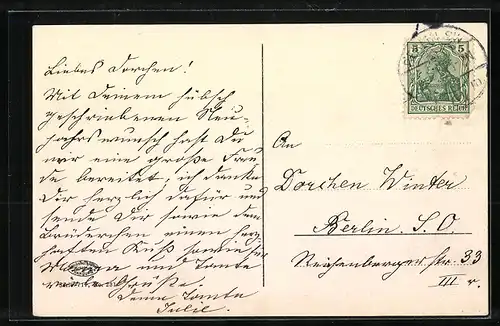 Liebes Dorchen!
Mit Deinem hübsch
geschriebenen Neu-
jahrswunsch hast Du
mir eine große Freu-
de bereitet, ich danke
Dir herzlich dafür und
sende Dir sowie dem
Brüderchen einen herz-
haften Kuß sowie für
Mama und Tante
Grüße.
Deine Tante
Julie.
5 5
DEUTSCHES REICH
An
Dorchen Winter
Berlin S.O.
Reichenbergerstr. 33
III r.